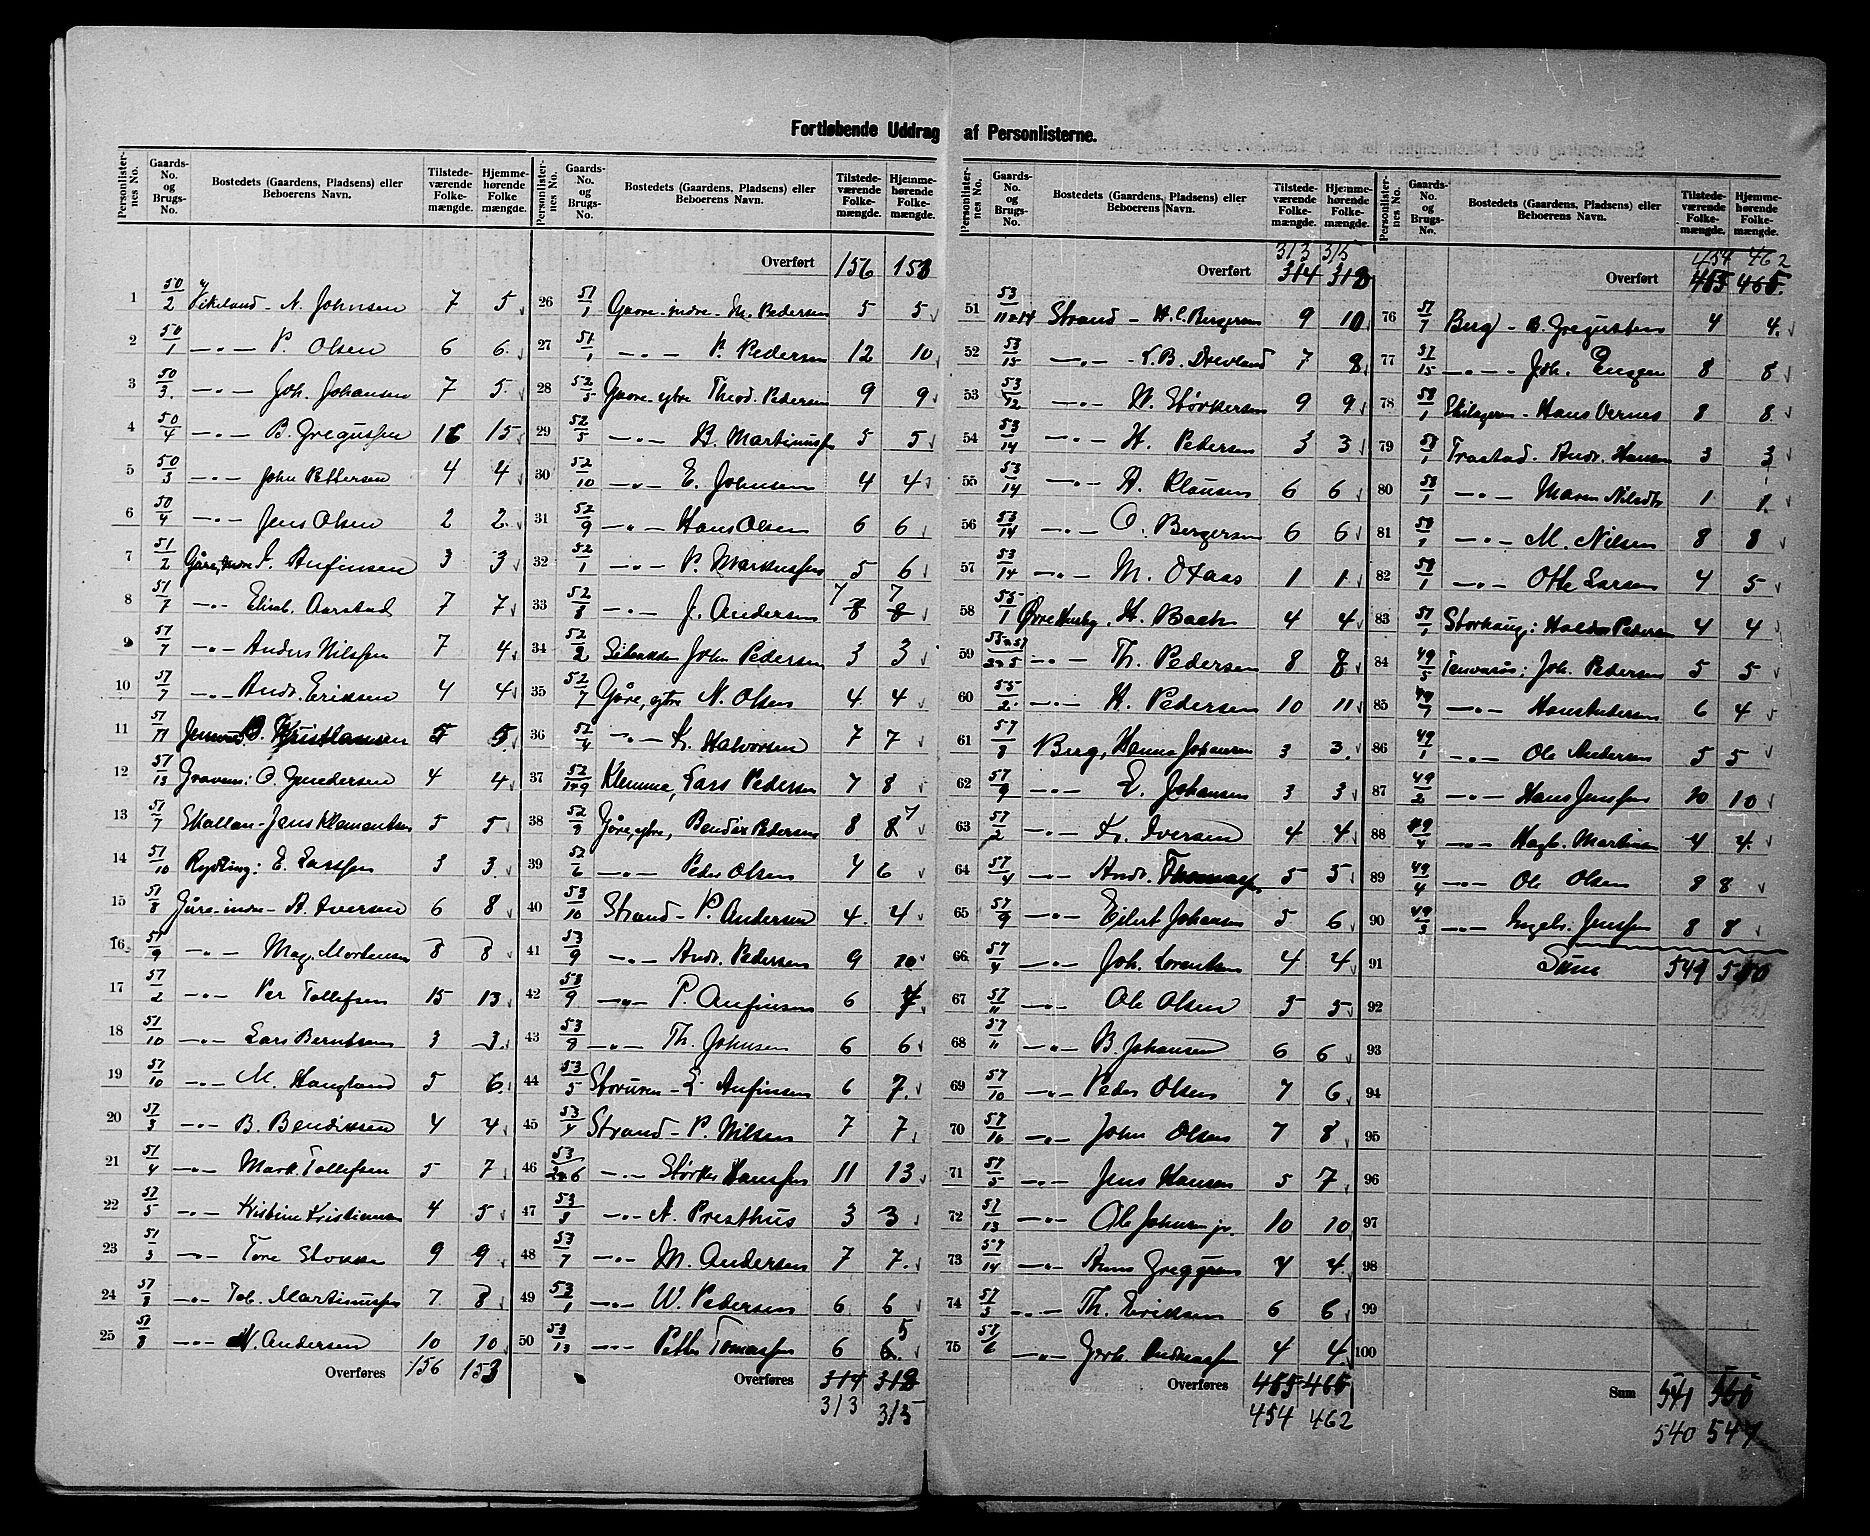 Fortløbende Uddrag af Personlisterne.
Personlister-nes No. | Gaards-No. og Brugs-No. | Bostedets (Gaardens, Pladsens) eller Beboerens Navn. | Tilstede-værende Folke-mængde. | Hjemme-hørende Folke mængde.
1 50/2 Vikeland - N. Johnsen 7 5
2 50/1 —„— P. Olsen 6 6
3 50/3 —„— Joh. Johansen 7 5
4 50/4 —„— B. Gregussen 16 15
5 50/3 —„— John Pettersen 4 4
6 50/4 —„— Jens Olsen 2 2
7 51/2 Gåre, indre Anfinsen 3 3
8 51/7 —„— Elisab. Aarstad 7 7
9 51/7 —„— Anders Nilssen 7 4
10 51/7 —„— Andr. Eriksen 4 4
11 51/11 B. Kristiansen 5 5
12 51/13 O. Gundersen 4 4
13 51/7 Skallan - Jens Klementsen 5 5
14 51/10 E. Larssen 3 3
15 51/8 Gåre - indre - A. Iversen 6 8
16 51/9 —„— Mag. Mortensen 8 8
17 51/2 —„— Per Tollefsen 15 13
18 51/10 —„— Lars Berntsen 3 3
19 51/10 —„— M. Haugland 5 6
20 51/3 —„— B. Bendiksen 4 4
21 51/4 —„— Mark. Tollefsen 5 7
22 51/5 —„— Kristine Kristiansen 4 5
23 51/3 —„— Tore Stokke 9 9
24 51/8 —„— Tob. Martinussen 7 8
25 51/8 —„— N. Andersen 10 10
Overføres 156 153
Personlister-nes No. | Gaards-No. og Brugs-No. | Bostedets (Gaardens, Pladsens) eller Beboerens Navn. | Tilstede-værende Folke-mængde. | Hjemme-hørende Folke-mængde.
Overført 156 153
26 51/1 Gaare - indre - Pedersen 5 5
27 51/1 —„— P. Pedersen 12 10
28 52/5 Gaare - ytre Theod. Pedersen 9 9
29 52/5 —„— B. Martinussen 5 5
30 52/10 —„— E. Johnsen 4 4
31 52/9 —„— Hans Olsen 6 6
32 52/1 —„— P. Markussen 5 6
33 52/8 —„— J. Andersen 7 8 7 8
34 52/2 John Pedersen 3 3
35 52/7 Gåre, ytre N. Olsen 4 4
36 52/4 —„— Halvorsen 7 7
37 52 Klemma, Lars Pedersen 7 8
38 52/3 Gåre, ytre, Bendix Pedersen 8 8 7
39 52/6 —„— Peder Olsen 4 6
40 53/10 Strand - P. Andersen 4 4
41 53/9 —„— Andr. Pedersen 9 10
42 53/9 —„— P. Anfinsen 6
43 53/8 —„— Th. Johnsen 6 6
44 53/5 Anfinsen 6 7
45 53/4 Strand - P. Nilsen 7 7
46 53/2 a 6 —„— Størker Hanssen 11 13
47 53/3 —„— A. Presthus 3 3
48 53/7 —„— M. Andersen 7 7
49 53/1 —„— W. Pedersen 6 6
50 53/13 —„— Petter Tomassen 6 6 5
Overføres 314 318
313 315
Personlister-nes No. | Gaards-No. og Brugs-No. | Bostedets (Gaardens, Pladsens) eller Beboerens Navn. | Tilstede-værende Folke-mængde. | Hjemme-hørende Folke-mængde.
313 315
Overført 314 318
51 53/11 Strand - H. C. Bergersen 9 10
52 53/15 —„— L. B. Drevland 7 8
53 53/12 —„— W. Størkersen 9 9
54 53/14 —„— H. Pedersen 3 3
55 53/14 —„— A. Klausen 6 6
56 53/14 —„— O. Bergersen 6 6
57 53/14 —„— M. Oxaas 1 1
58 55/1 Øvre Husby, H. Bach 4 4
59 —„— Th. Pedersen 8 8
60 55/2 —„— H. Pedersen 10 11
61 57/8 Berg, Hanna Johansen 3 3
62 57/9 —„— E. Johansen 3 3
63 57/2 —„— Iversen 4 4
64 57/4 —„— Andr. Thomassen 5 5
65 57/9 —„— Eilert Johansen 5 6
66 57/4 —„— Joh. Lorentsen 4 4
67 57/11 —„— Ole Olsen 5 5
68 57/11 —„— B. Johansen 6 6
69 57/10 —„— Peder Olsen 7 6
70 57/16 —„— John Olsen 7 8
71 57/5 —„— Jens Hansen 5 7
72 57/13 —„— Ole Johnsen jr. 10 10
73 57/14 —„— Greggersen 4 4
74 57/3 —„— Th. Eriksen 6 6
75 57/6 —„— Gerh. Andreassen 4 4
Overføres 455 465
454 462
Personlister-nes No. | Gaards-No. og Brugs-No. | Bostedets (Gaardens, Pladsens) eller Beboerens Navn. | Tilstede-værende Folke-mængde. | Hjemme-hørende Folke-mængde.
454 462
Overført 455 465
76 57/7 Berg - B. Gregusten 4 4
77 57/15 —„— Joh. 8 8
78 58/1 Hans Vernes 8 8
79 58/1 Trastad. Andr. Hansen 3 3
80 58/1 —„— Maren Nilsdtr 1 1
81 58/1 —„— M. Nilsen 8 8
82 58/1 —„— Otto Larsen 4 5
83 Storhaug: Haldor Pedersen 4 4
84 49/5 Joh. Pedersen 5 5
85 49/7 —„— Hans Andersen 6 4
86 49/1 —„— Ole Andersen 5 5
87 49/2 —„— Hans Jenssen 10 10
88 49/4 —„— Hagb. Martinsen 4 4
89 49/4 —„— Ole Olsen 8 8
90 49/3 —„— Engebr. Jenssen 8 8
91 Sum 541
92
93
94
95
96
97
98
99
100
Sum 541 550
540 547